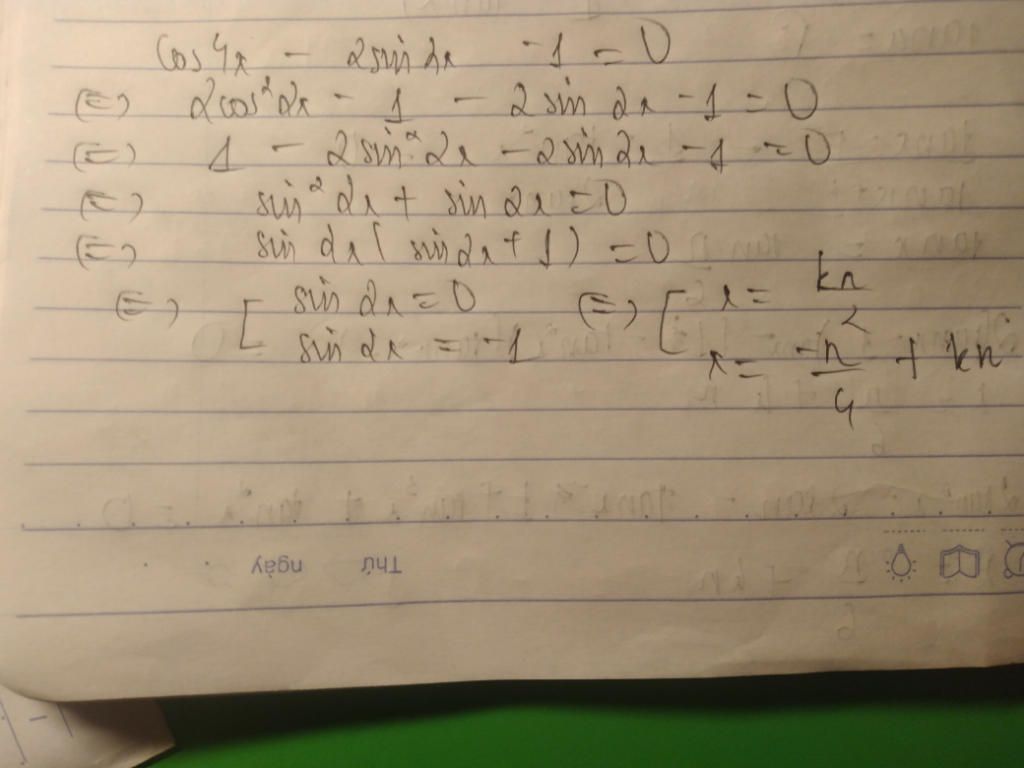 cos4x - 2sin2x - 1 = 0
(=) 2cos²2x - 1 - 2sin 2x - 1 = 0
(=) 1 - 2sin²2x - 2sin2x - 1 = 0
(=) sin²2x + sin 2x = 0
(=) sin 2x ( sin2x + 1 ) = 0
(=) [ sin 2x = 0 (=) [ x = kπ/2
sin 2x = -1 x = -π/4 + kπ
Thứ ngày